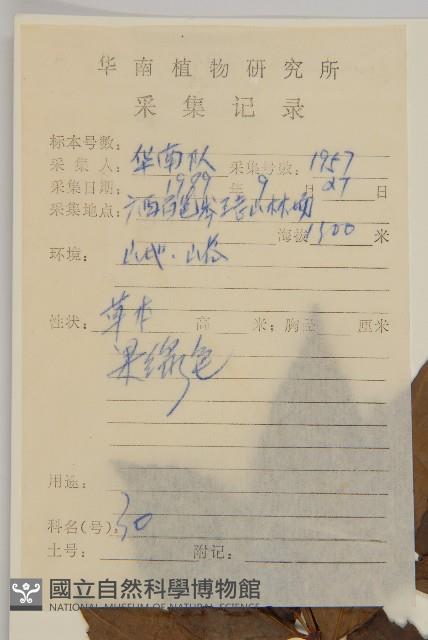 华南植物研究所
采集记录
标本号数：
采集人：华南队 采集号数：1957
采集日期：1989年9月27日
采集地点：广西 林场
海拔1300米
环境：山地．山谷
性状：草本 高 米；胸径 厘米
果绿色
用途：
科名(号)：30
土号： 附记：
國立自然科學博物館
NATIONAL MUSEUM OF NATURAL SCIENCE